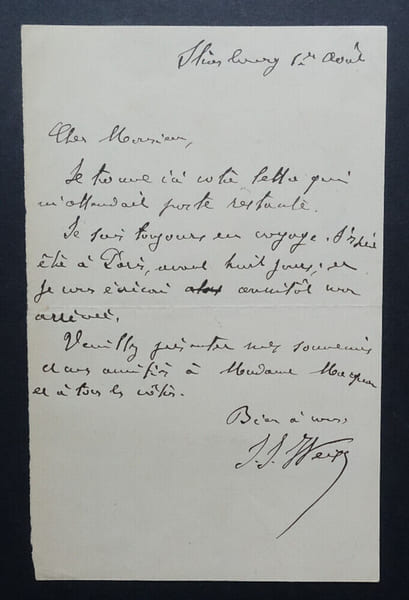 Strasbourg 1er Août
Cher Monsieur,
Je trouve ici votre lettre qui
m'attendait poste restante.
Je suis toujours en voyage.
à Paris, avant huit jours; et
je vous écrirai alors aussitôt mon
arrivée.
Veuillez présenter mes souvenirs
et mes amitiés à Madame
et à tous les vôtres.
Bien à vous,
J. J. Weiss